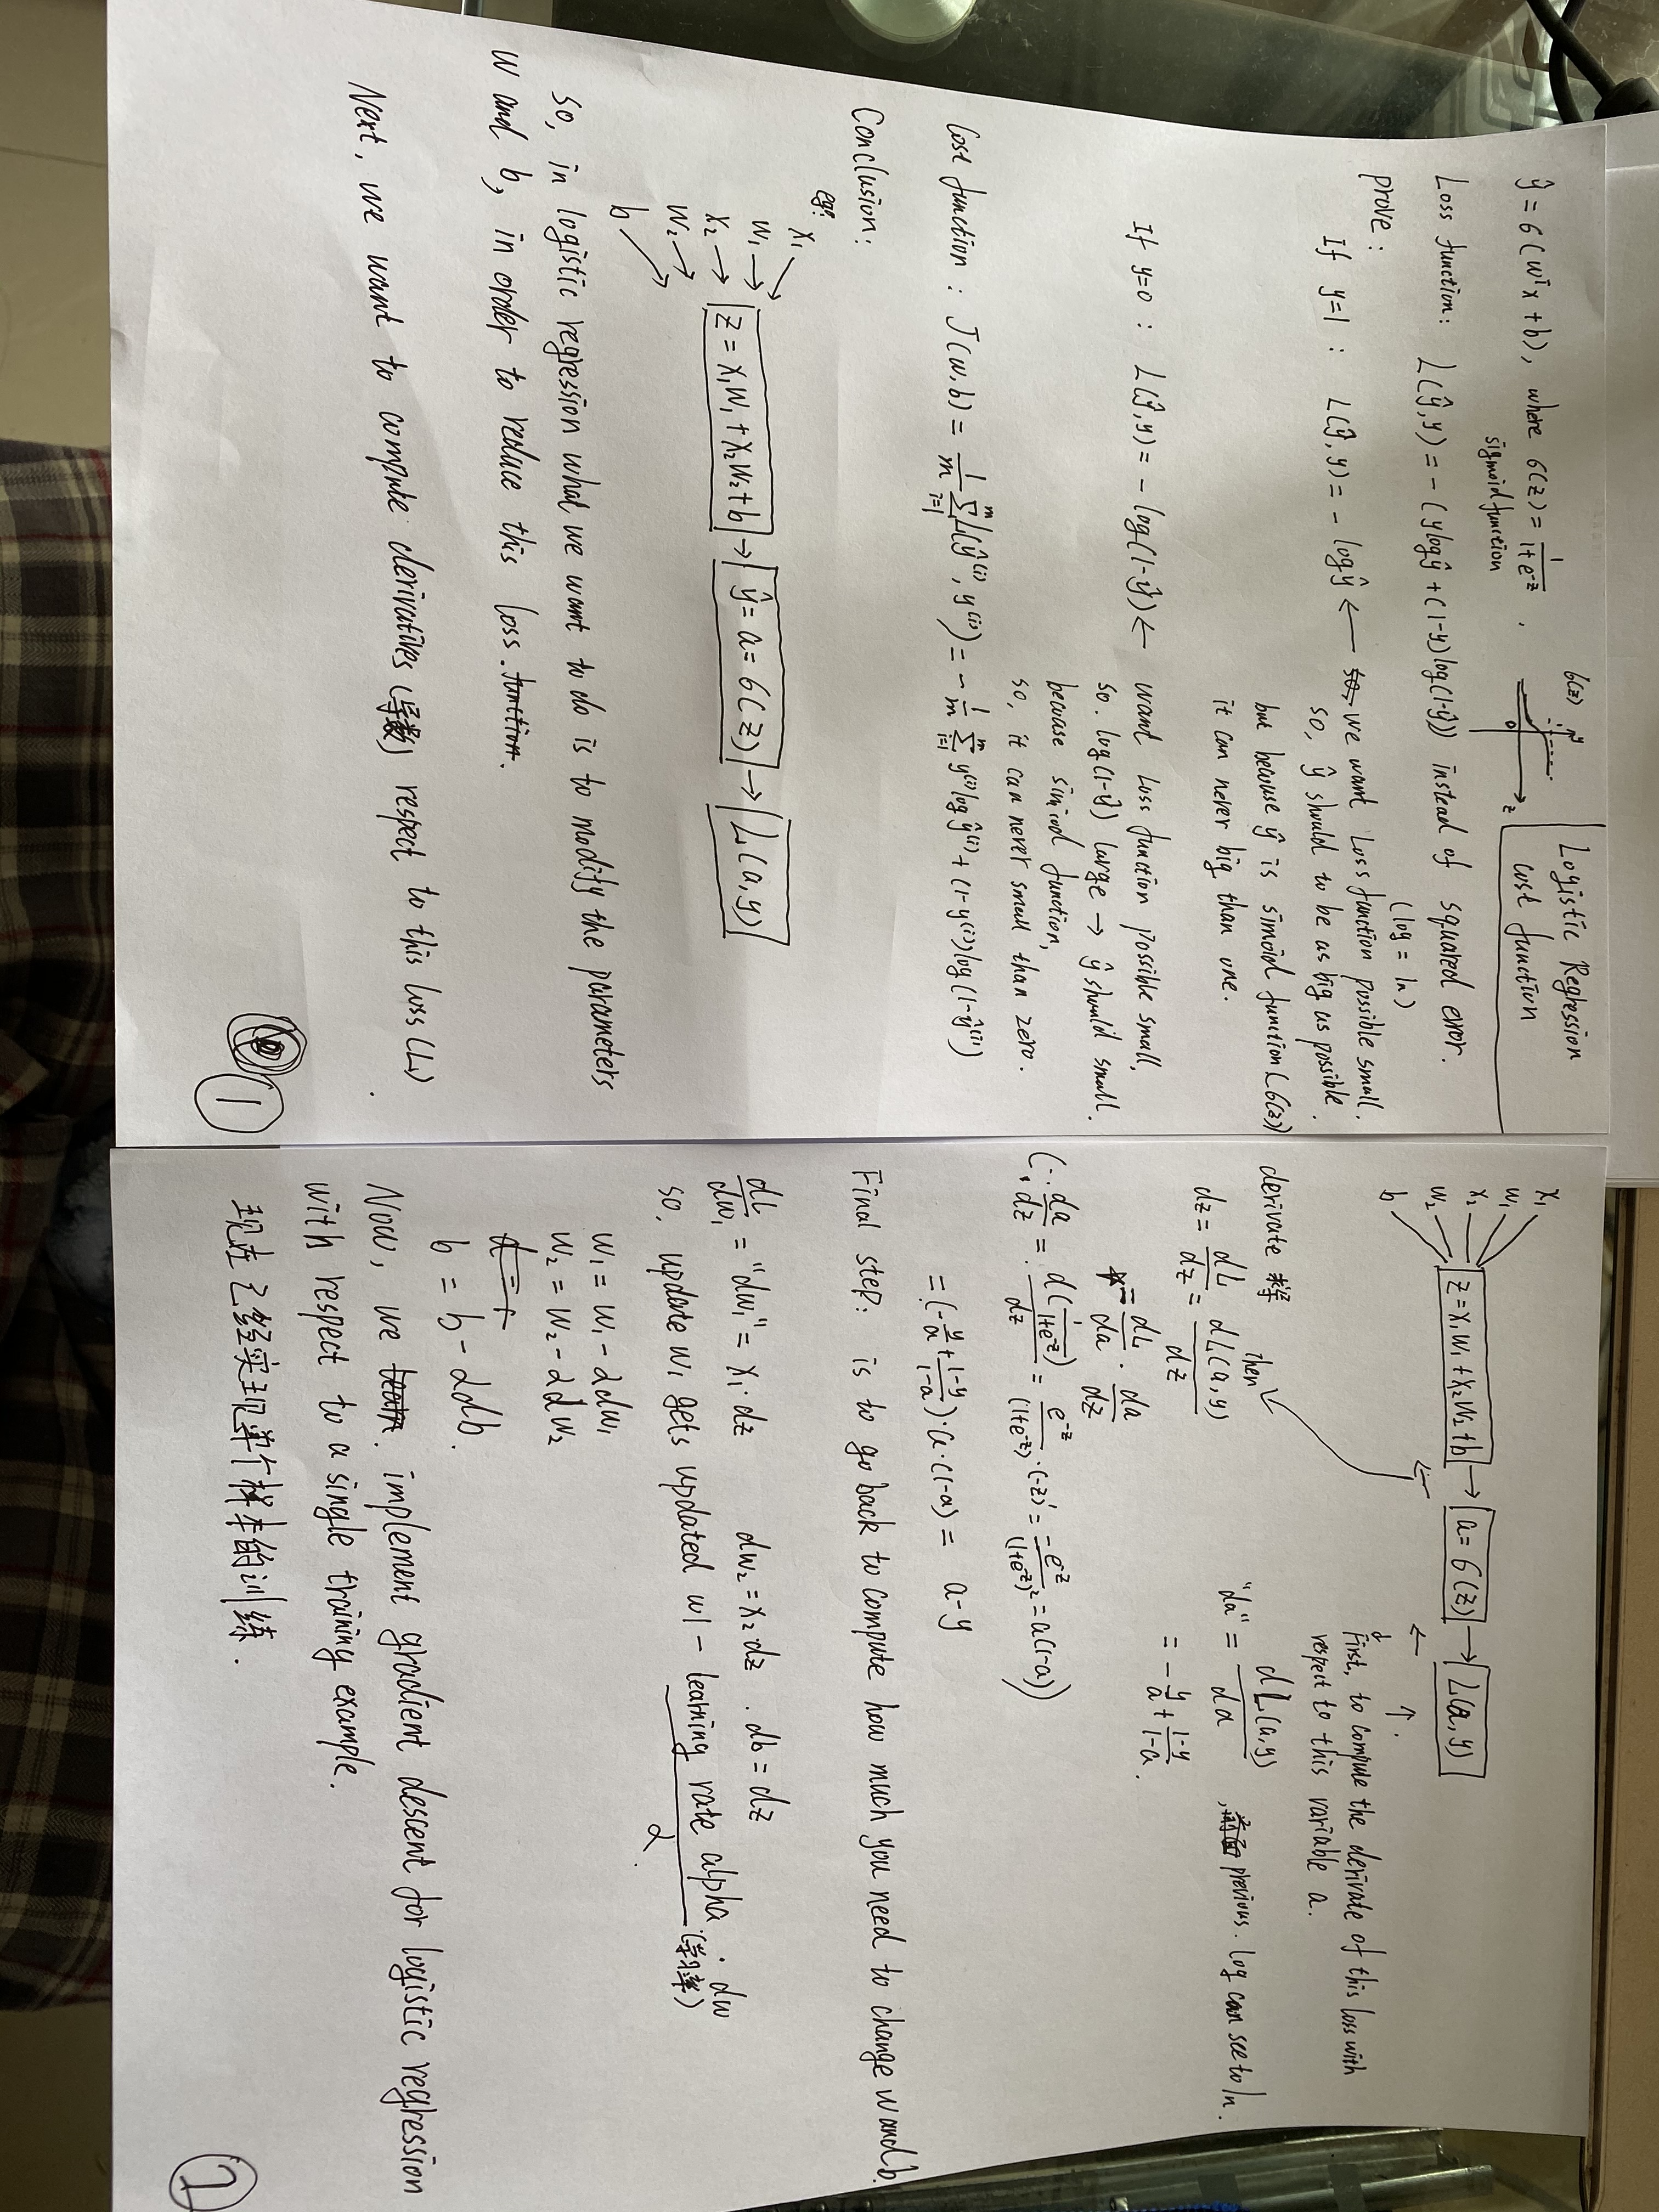 Logistic Regression
cost function
ŷ = 6(wᵀx + b), where 6(z) = 1/(1+e^-z) ,
sigmoid function
6(z)
0
z
Loss function: L(ŷ,y) = - (ylogŷ + (1-y)log(1-ŷ)) instead of squared error.
(log = ln)
prove:
If y=1 : L(ŷ,y) = - logŷ ← we want Loss function possible small.
so, ŷ should to be as big as possible.
but because ŷ is simoid function(6(z))
it can never big than one.
If y=0 : L(ŷ,y) = - log(1-ŷ) ← want Loss function possible small,
so. log(1-ŷ) large → ŷ should small.
because simiod function,
so, it can never small than zero.
Cost function : J(w,b) = 1/m Σ(i=1, m) L(ŷ⁽ⁱ⁾, y⁽ⁱ⁾) = - 1/m Σ(i=1, m) y⁽ⁱ⁾logŷ⁽ⁱ⁾ + (1-y⁽ⁱ⁾)log(1-ŷ⁽ⁱ⁾)
Conclusion:
eg:
x₁
w₁
x₂
w₂
b
z = x₁w₁ + x₂w₂ + b → ŷ = a = 6(z) → L(a,y)
So, in logistic regression what we want to do is to modify the parameters
w and b, in order to reduce this loss. function.
Next, we want to compute derivatives (导数) respect to this loss (L).
1
x₁
w₁
x₂
w₂
b
z = x₁w₁ + x₂w₂ + b → a = 6(z) → L(a,y)
First, to compute the derivate of this loss with
respect to this variable a.
derivate
then
"da" = dL(a,y)/da , 前面 previous. log can see to ln.
= - y/a + (1-y)/(1-a) .
dz = dL/dz = dL(a,y)/dz
= dL/da · da/dz
(∵ da/dz = d(1/(1+e^-z))/dz = e^-z/(1+e^-z) · (-z)' = -e^-z/(1+e^-z)² = a(1-a))
= (-y/a + (1-y)/(1-a)) · a·(1-a) = a-y
Final step: is to go back to compute how much you need to change w and b.
dL/dw₁ = "dw₁" = x₁·dz dw₂ = x₂·dz . db = dz
so, update w₁ gets updated w1 - learning rate alpha · dw
α. (学习率)
w₁ = w₁ - αdw₁
w₂ = w₂ - αdw₂
b = b - αdb.
Now, we implement gradient descent for logistic regression
with respect to a single training example.
现在已经实现单个样本的训练.
2